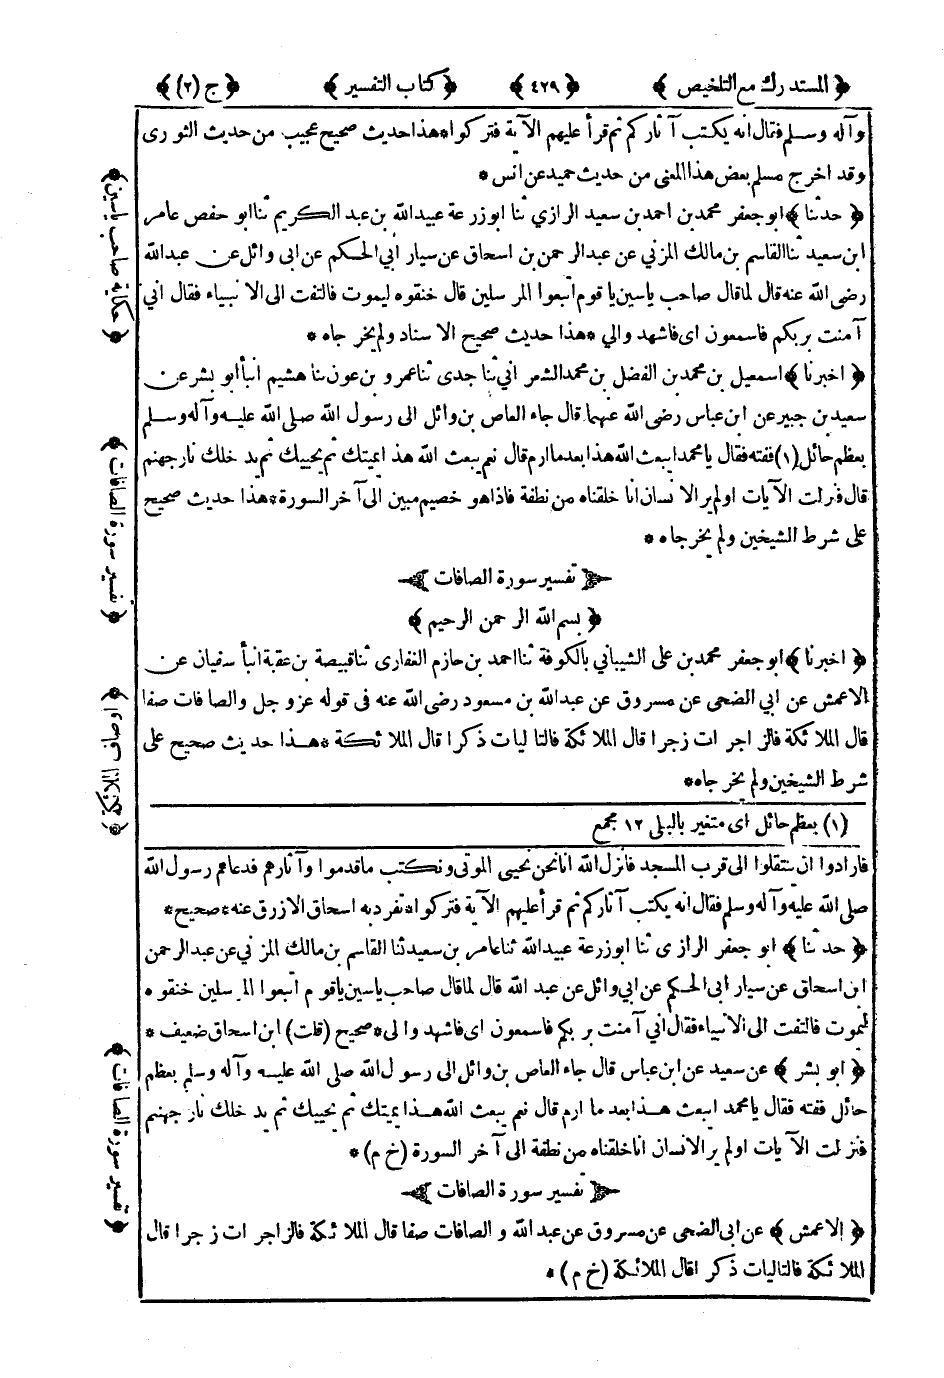 ﴿ المستدرك مع التلخيص ﴾ ﴿ ٤٢٩ ﴾ ﴿ كتاب التفسير ﴾ ﴿ ج (٢) ﴾
وآله وسلم فقال انه يكتب آثاركم ثم قرأ عليهم الآية فتركوا * هذا حديث صحيح عجيب من حديث الثورى
وقد اخرج مسلم بعض هذا المعنى من حديث حميد عن انس *
﴿ حدثنا ﴾ ابو جعفر محمد بن احمد بن سعيد الرازي ثنا ابوزرعة عبيد الله بن عبد الكريم ثنا ابو حفص عامر
ابن سعيد ثنا القاسم بن مالك المزني عن عبد الرحمن بن اسحاق عن سيار أبي الحكم عن ابى وائل عن عبد الله
رضى الله عنه قال لما قال صاحب ياسين يا قوم اتبعوا المرسلين قال خنقوه ليموت فالتفت الى الانبياء فقال اني
آمنت بربكم فاسمعون اى فاشهدوالي * هذا حديث صحيح الاسناد ولم يخرجاه *
﴿ اخبرنا ﴾ اسمعيل بن محمد بن الفضل بن محمد الشعراني ثنا جدى ثنا عمرو بن عون ثنا هشيم انبأ أبو بشر عن
سعيد بن جبير عن ابن عباس رضى الله عنهما قال جاء العاص بن وائل الى رسول الله صلى الله عليه وآله وسلم
بعظم حائل (١) ففته فقال يا محمد ايبعث الله هذا بعد ما ارم قال نعم يبعث الله هذا يميتك ثم يحييك ثم يدخلك نار جهنم
قال فنزلت الآيات اولم ير الانسان انا خلقناه من نطفة فاذا هو خصيم مبين الى آخر السورة * هذا حديث صحيح
على شرط الشيخين ولم يخرجاه *
﴿ تفسير سورة الصافات ﴾
﴿ بسم الله الرحمن الرحيم ﴾
﴿ اخبرنا ﴾ ابو جعفر محمد بن على الشيباني بالكوفة ثنا احمد بن حازم الغفارى ثنا قبيصة بن عقبة انبأ سفيان عن
الاعمش عن ابي الضحى عن مسروق عن عبد الله بن مسعود رضى الله عنه فى قوله عزوجل والصافات صفا
قال الملائكة فالزاجرات زجرا قال الملائكة فالتاليات ذكرا قال الملائكة * هذا حديث صحيح على
شرط الشيخين ولم يخرجاه *
(١) بعظم حائل اى متغير بالبلى ١٢ مجمع
فارادوا ان ينتقلوا الى قرب المسجد فانزل الله انا نحن نحيى الموتى ونكتب ما قدموا وآثارهم فدعاهم رسول الله
صلى الله عليه وآله وسلم فقال انه يكتب آثاركم ثم قرأ عليهم الآية فتركوا * تفرد به اسحاق الازرق عنه * صحيح *
﴿ حدثنا ﴾ ابو جعفر الرازى ثنا ابوزرعة عبيد الله ثنا عامر بن سعيد ثنا القاسم بن مالك المزني عن عبد الرحمن
ابن اسحاق عن سيار أبى الحكم عن ابي وائل عن عبد الله قال لما قال صاحب ياسين ياقوم اتبعوا المرسلين خنقوه
ليموت فالتفت الى الانبياء فقال اني آمنت بربكم فاسمعون اى فاشهدوالى * صحيح (قلت) ابن اسحاق ضعيف *
﴿ ابو بشر ﴾ عن سعيد عن ابن عباس قال جاء العاص بن وائل الى رسول الله صلى الله عليه وآله وسلم بعظم
حائل ففته فقال يا محمد ايبعث هذا بعد ما ارم قال نعم يبعث الله هذا يميتك ثم يحييك ثم يدخلك نار جهنم
فنزلت الآيات اولم ير الانسان انا خلقناه من نطفة الى آخر السورة (خ م) *
﴿ تفسير سورة الصافات ﴾
﴿ الاعمش ﴾ عن ابى الضحى عن مسروق عن عبد الله والصافات صفا قال الملائكة فالزاجرات زجرا قال
الملائكة فالتاليات ذكرا قال الملائكة (خ م) *
﴿ حكاية صاحب ياسين ﴾
﴿ تفسير سورة الصافات ﴾
﴿ تفسير سورة الصافات ﴾